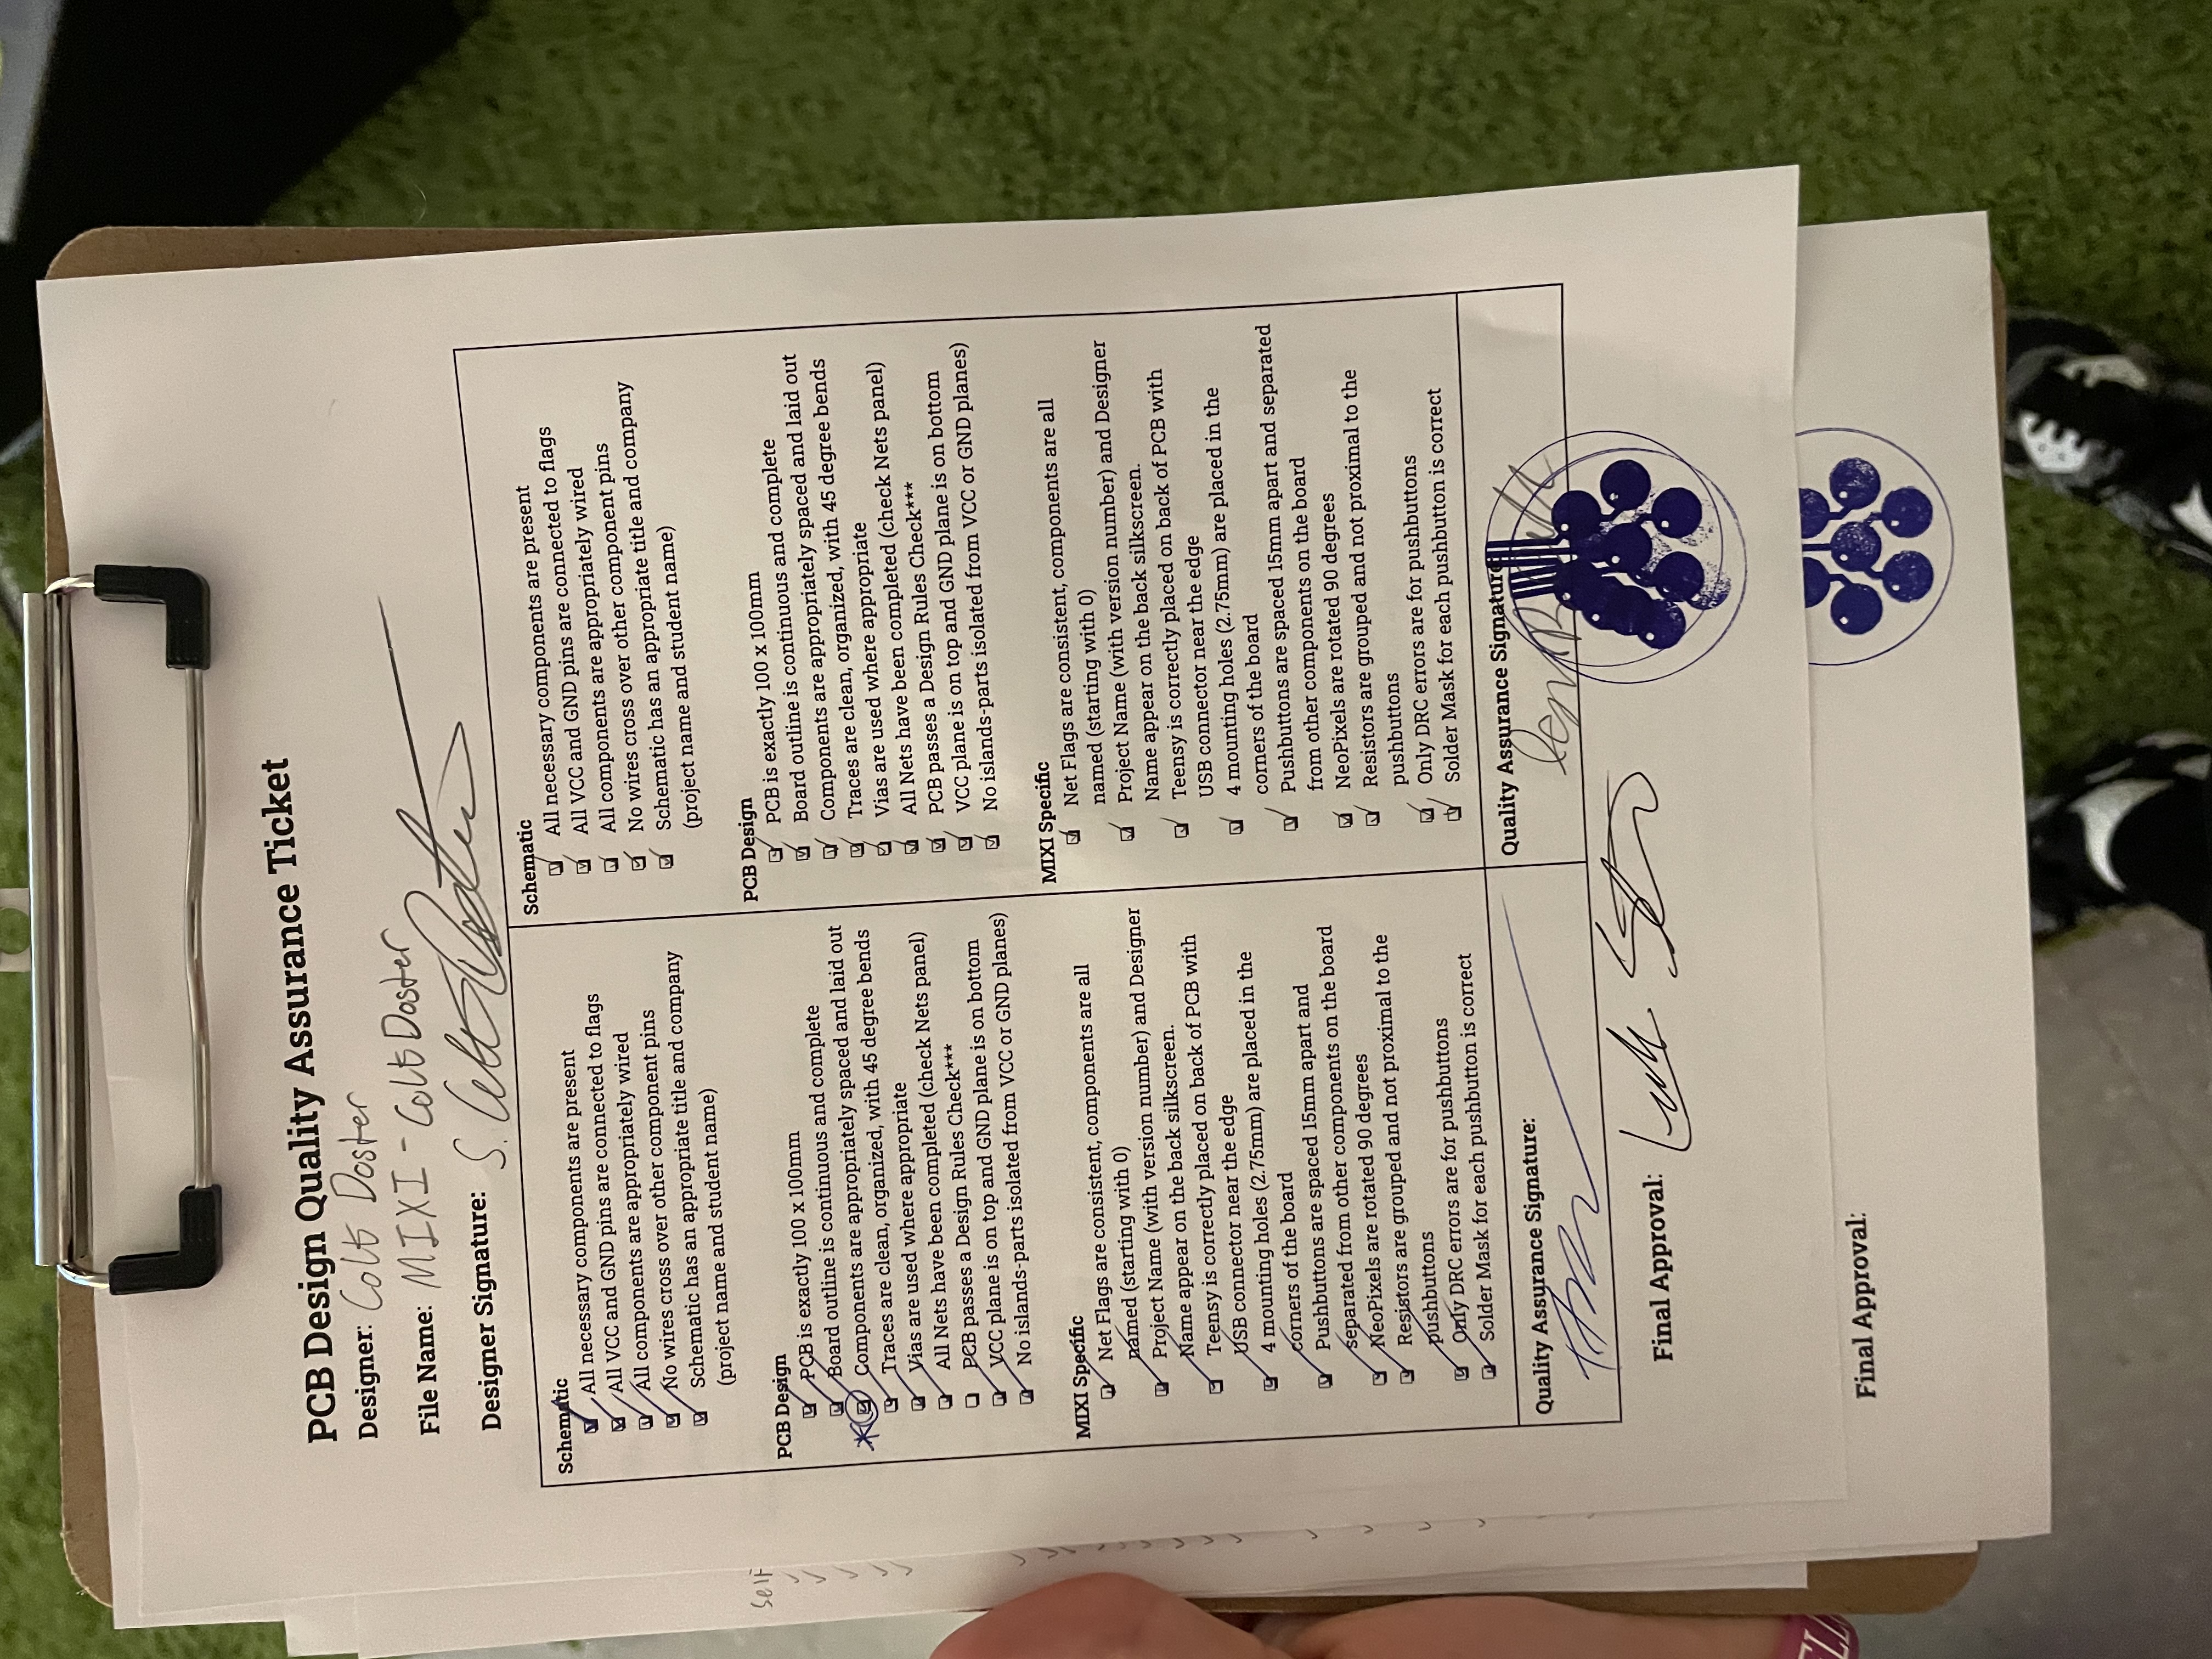 PCB Design Quality Assurance Ticket
Designer: Colt Doster
File Name: MIXI - Colt Doster
Designer Signature: S. Colt Doster
Schematic
All necessary components are present
All VCC and GND pins are connected to flags
All components are appropriately wired
No wires cross over other component pins
Schematic has an appropriate title and company
(project name and student name)
PCB Design
PCB is exactly 100 x 100mm
Board outline is continuous and complete
Components are appropriately spaced and laid out
Traces are clean, organized, with 45 degree bends
Vias are used where appropriate
All Nets have been completed (check Nets panel)
PCB passes a Design Rules Check***
VCC plane is on top and GND plane is on bottom
No islands-parts isolated from VCC or GND planes)
MIXI Specific
Net Flags are consistent, components are all
named (starting with 0)
Project Name (with version number) and Designer
Name appear on the back silkscreen.
Teensy is correctly placed on back of PCB with
USB connector near the edge
4 mounting holes (2.75mm) are placed in the
corners of the board
Pushbuttons are spaced 15mm apart and
separated from other components on the board
NeoPixels are rotated 90 degrees
Resistors are grouped and not proximal to the
pushbuttons
Only DRC errors are for pushbuttons
Solder Mask for each pushbutton is correct
Quality Assurance Signature:
Schematic
All necessary components are present
All VCC and GND pins are connected to flags
All components are appropriately wired
No wires cross over other component pins
Schematic has an appropriate title and company
(project name and student name)
PCB Design
PCB is exactly 100 x 100mm
Board outline is continuous and complete
Components are appropriately spaced and laid out
Traces are clean, organized, with 45 degree bends
Vias are used where appropriate
All Nets have been completed (check Nets panel)
PCB passes a Design Rules Check***
VCC plane is on top and GND plane is on bottom
No islands-parts isolated from VCC or GND planes)
MIXI Specific
Net Flags are consistent, components are all
named (starting with 0)
Project Name (with version number) and Designer
Name appear on the back silkscreen.
Teensy is correctly placed on back of PCB with
USB connector near the edge
4 mounting holes (2.75mm) are placed in the
corners of the board
Pushbuttons are spaced 15mm apart and separated
from other components on the board
NeoPixels are rotated 90 degrees
Resistors are grouped and not proximal to the
pushbuttons
Only DRC errors are for pushbuttons
Solder Mask for each pushbutton is correct
Quality Assurance Signature
Final Approval:
Final Approval:
Self